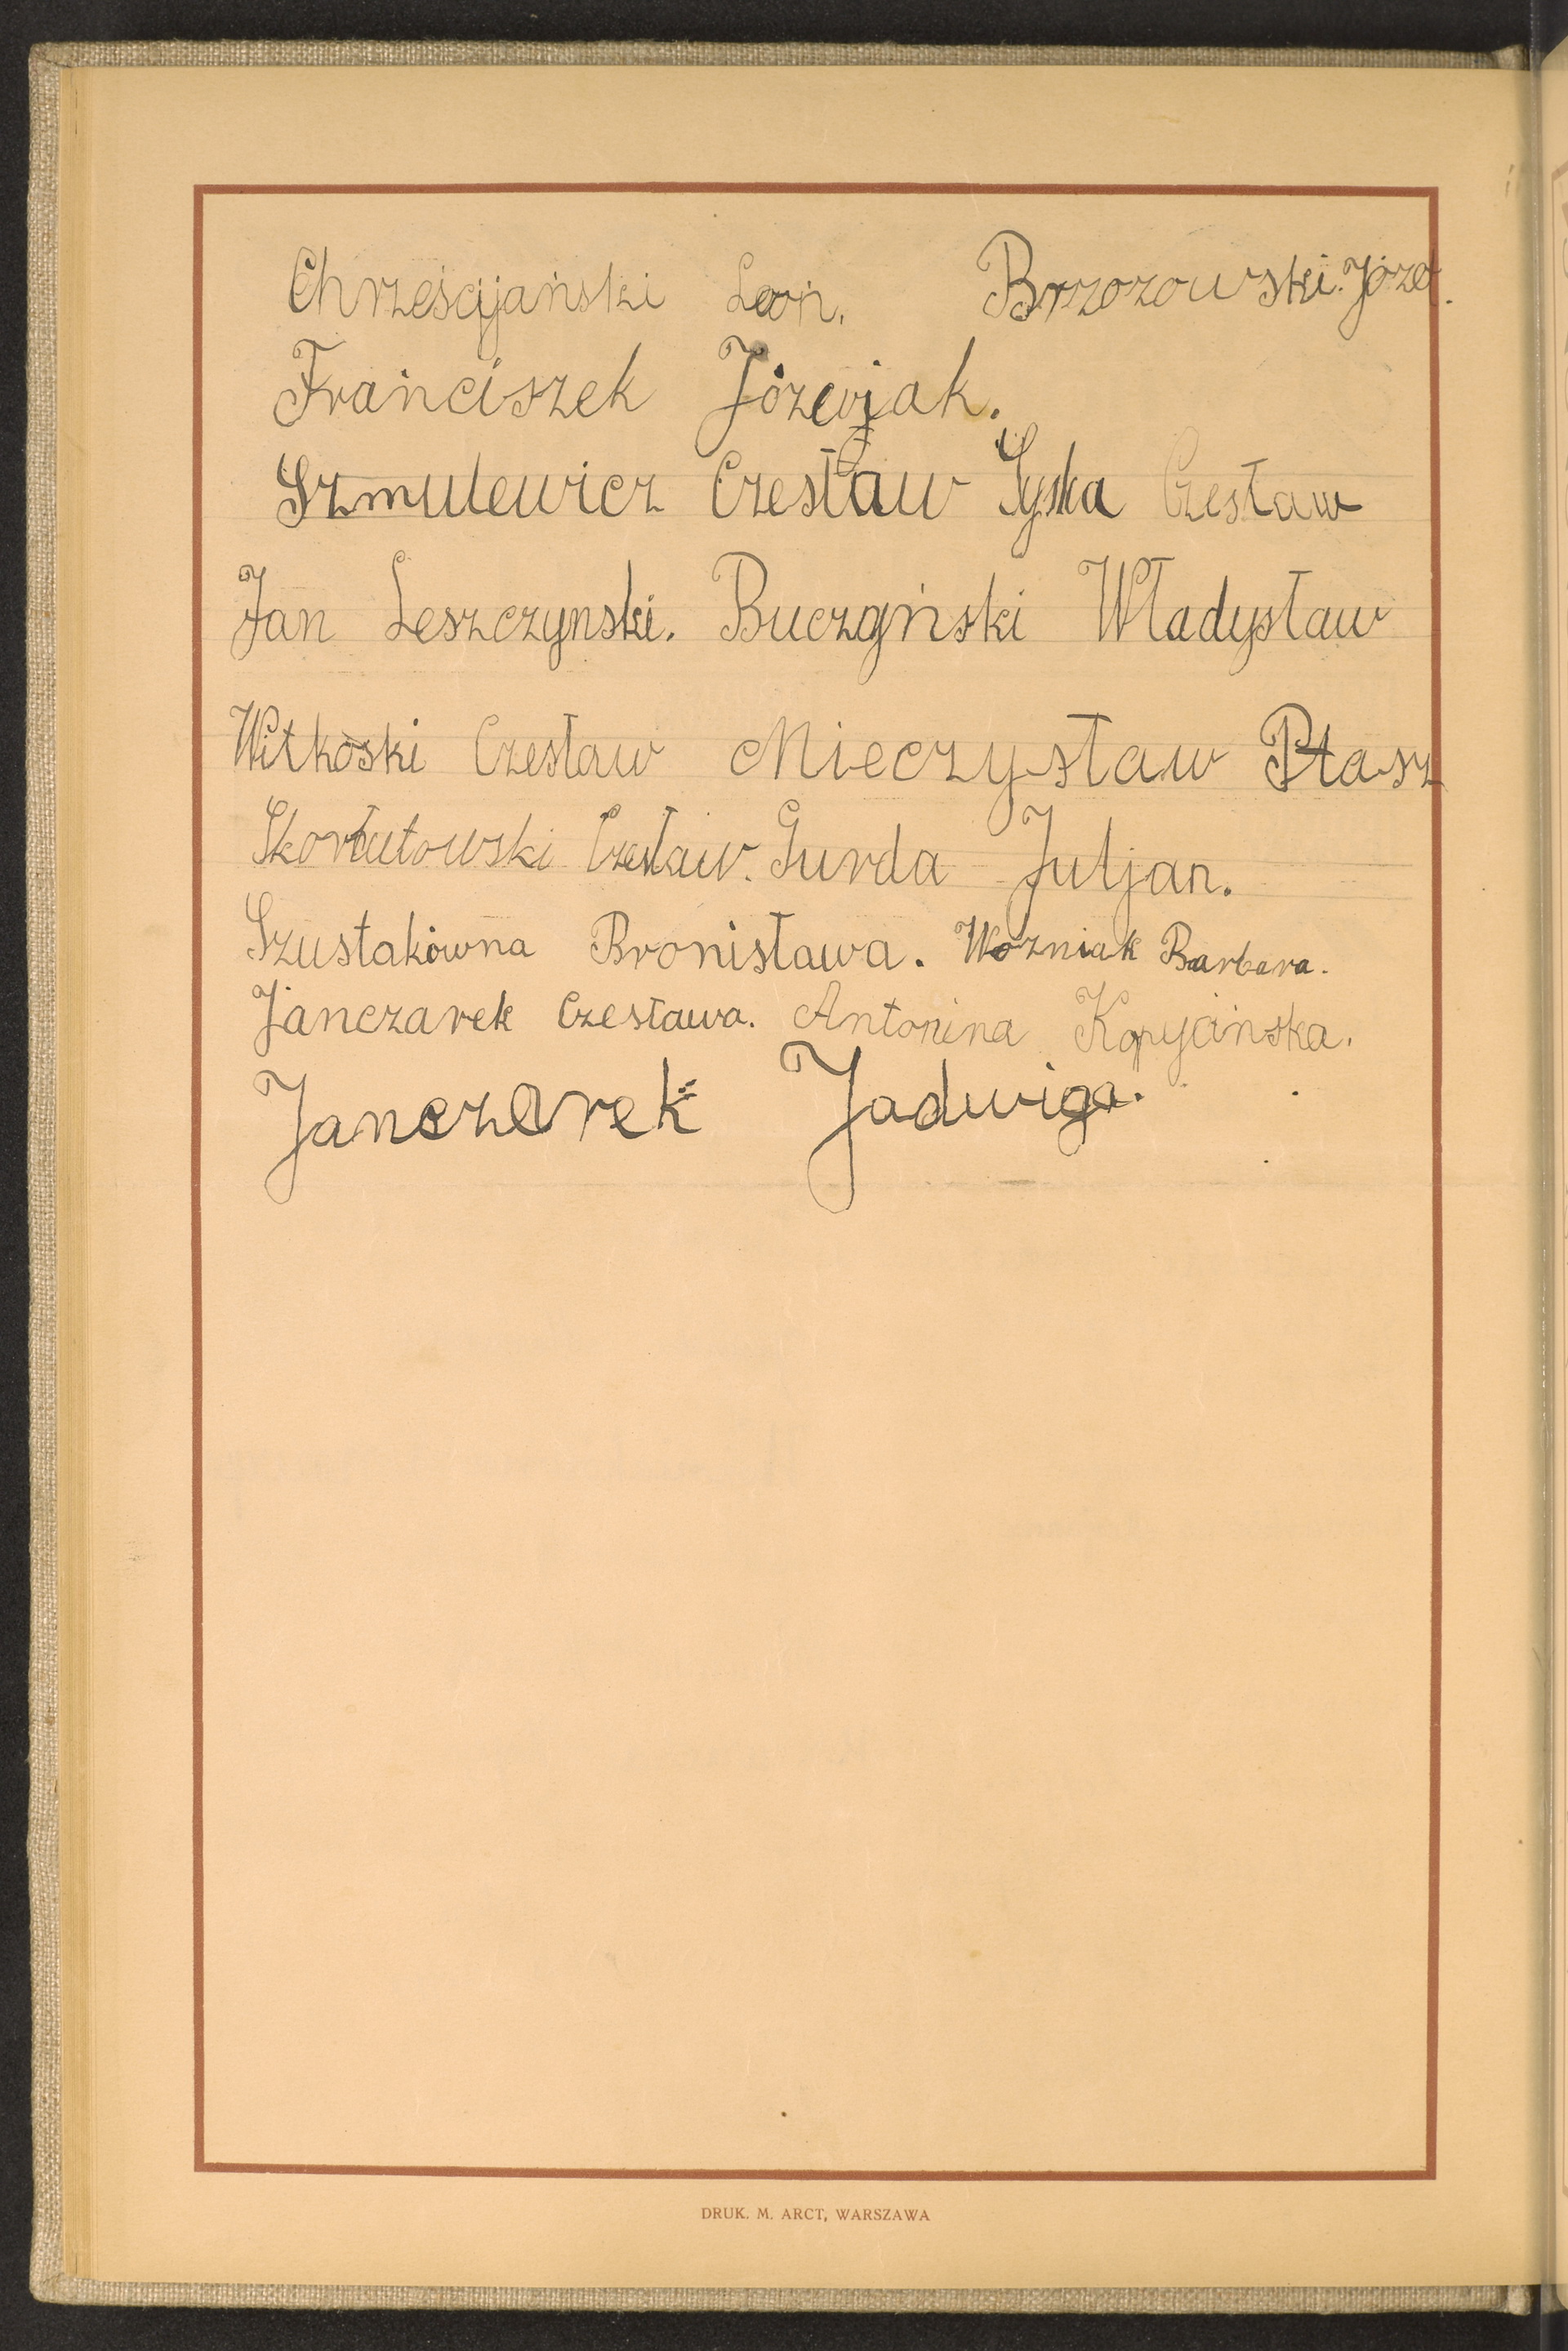 Chrześcijański Leon. Brzozowski. Józef.
Franciszek Józewjak.
Szmulewicz Czesław Syska Czesław
Jan Leszczynski. Buczyński Władysław
Witkoski Czesław Mieczysław Ptasz
Czesław. Gurda Juljan.
Szustakówna Bronisława. Woźniak Barbara.
Janczarek Czesława. Antonina Kopycińska.
Janczarek Jadwiga.
DRUK. M. ARCT, WARSZAWA